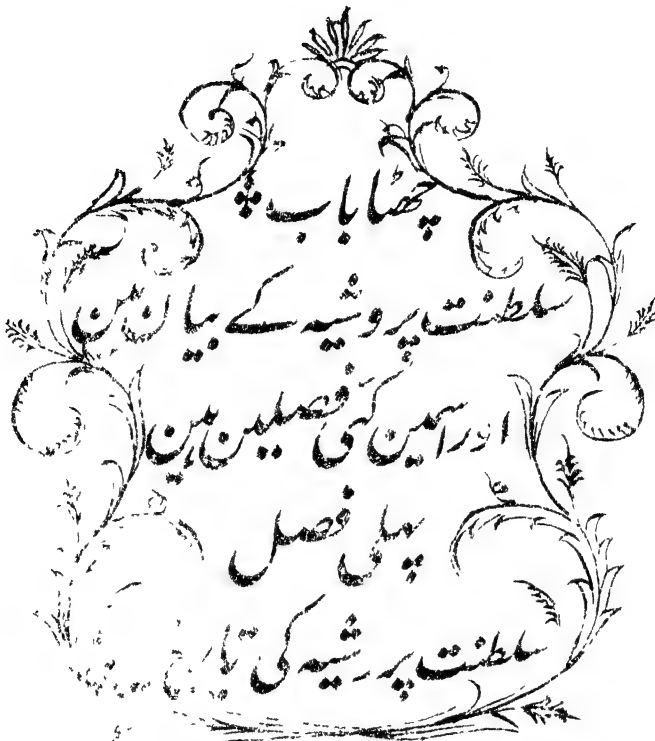 چھٹا باب
سلطنت پروشیہ کے بیان مین
اور اسمین کئی فصلین ہین
پہلی فصل
سلطنت پروشیہ کی